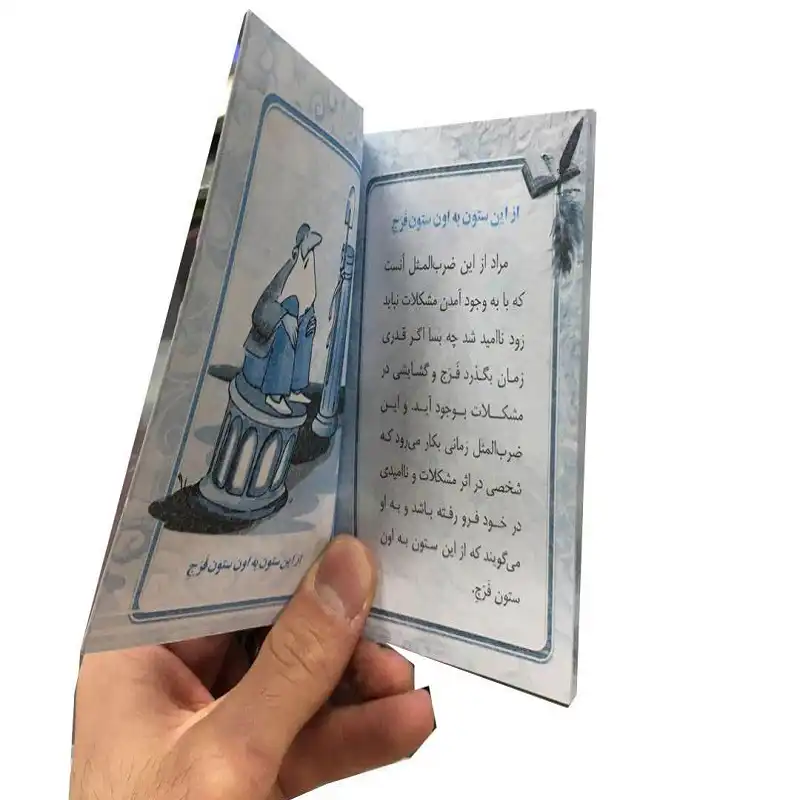 از این ستون به اون ستون فَرَج
مراد از این ضرب‌المـثل آنست
که با به وجود آمدن مشکلات نباید
زود ناامید شد چه بسا اگر قدری
زمان بگـذرد فَـرَج و گشایشی در
مشکـلات بـوجود آیـد. و ایـن
ضرب‌المثل زمانی بکار می‌رود که
شخصی در اثر مشکلات و ناامیدی
در خـود فرو رفـته بـاشد و به او
می‌گویند که از این ستون به اون
ستون فَرَج.
از این ستون به اون ستون فَرَج